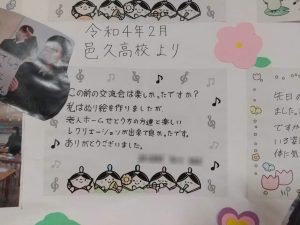 令和4年2月
邑久高校より
この前の交流会は楽しかったですか?
私はぬり絵を作りましたが、
老人ホームでお年寄りの方達と楽しい
レクリエーションが出来て良かったです。
ありがとうございました。
先日の
ました。
ですが
いる姿
体に気